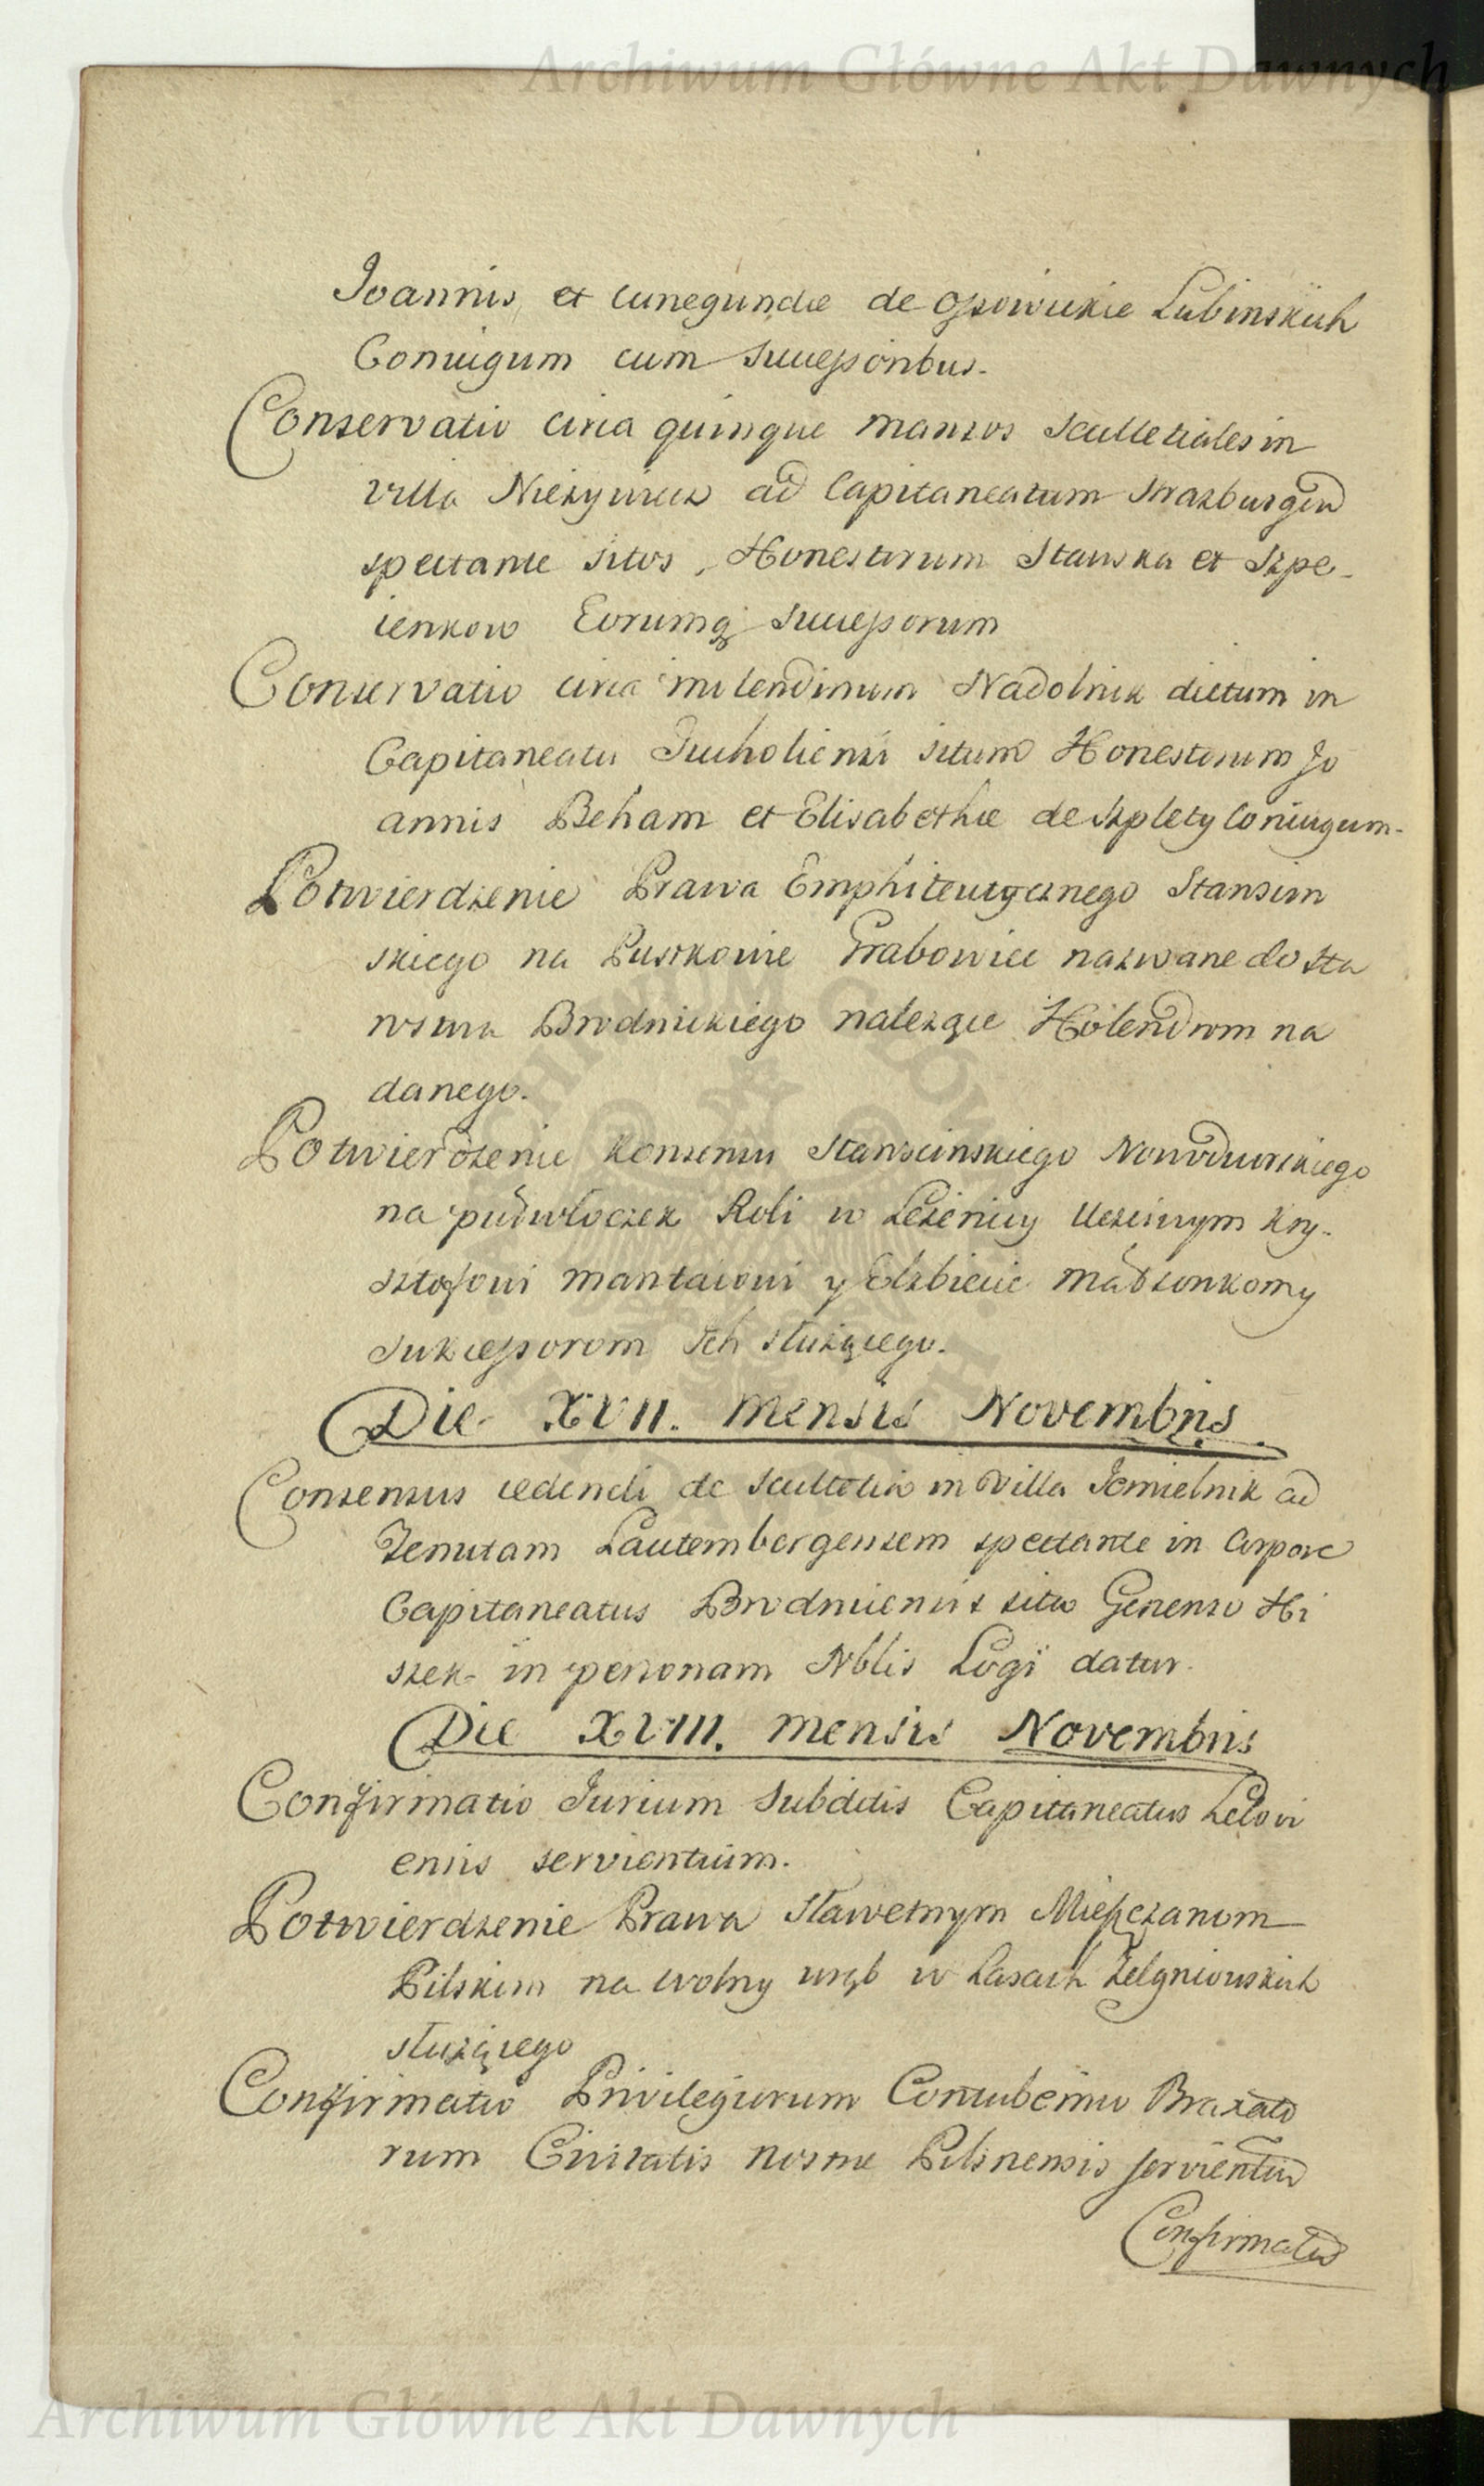 Archiwum Główne Akt Dawnych
Joannis et Cunegundæ de Ossowickie Lubinskich
Coniugum cum Successoribus.
Conservatio circa quinque mansos Scultetiales in
villa Nieżywiec ad Capitaneatum Strasburgen
spectante sitos, Honestorum Stawska et Szpe-
ienkow Eorumq Successorum
Conservatio circa molendinum Nadolnik dictum in
Capitaneatu Tucholiensi situm Honestorum Jo
annis Beham et Elisabethæ de Szplety Coniugum.
Potwierdzenie Prawa Emphiteutycznego Starościn
skiego na Pustkowie Grabowiec nazwane do Sta
rostwa Brodnickiego należące Holendrom na
danego.
Potwierdzenie Konsensu Starościnskiego Nowodworskiego
na pułwłoczek Roli w Leżenicy Uczciwym Kry-
sztofowi Mantaiowi y Elżbiecie Małżonkom y
Sukcessorom Ich służącego.
Die XVII. Mensis Novembris.
Consensus cedendi de Scultetia in Villa Jemielnik ad
Tenutam Lautembergensem spectante in Corpore
Capitaneatus Brodnicensis sita Generoso Hi
szek in personam Nblis Logi datur.
Die XVIII. Mensis Novembris
Confirmatio Jurium Subditis Capitaneatus Lelovi
ensis servientium.
Potwierdzenie Prawa Sławetnym Mieszczanom
Pilskim na wolny wrąb w Lasach Zelgniowskich
służącego
Confirmatio Privilegiorum Contubernio Braxato
rum Civitatis nostræ Pilsnensis servientiu
Confirmatio
Archiwum Główne Akt Dawnych